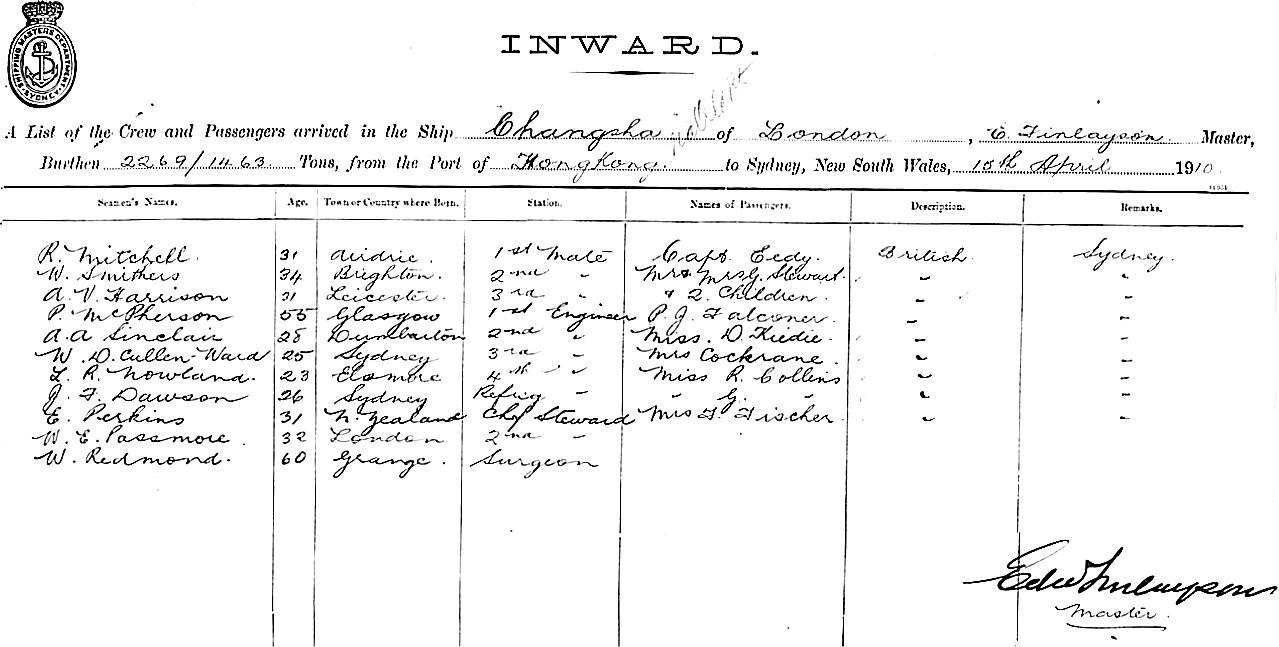 SHIPPING MASTERS DEPARTMENT
SYDNEY
INWARD.
A List of the Crew and Passengers arrived in the Ship Changsha of London, E. Finlayson Master,
Burthen 2269/1463 Tons, from the Port of HongKong. to Sydney, New South Wales, 15th April 1910.
Seamen's Names. Age. Town or Country where Born. Station. Names of Passengers. Description. Remarks.
R. Mitchell. 31 Airdrie. 1st Mate Capt. Eedy. British. Sydney.
W. Smithers 34 Brighton. 2nd " Mr & Mrs G. Stewart. " "
A. V. Harrison 31 Leicester. 3rd " & 2. Children. " "
P. McPherson 55 Glasgow 1st Engineer P. J. Falconer. " "
A. A Sinclair 28 Dumbarton 2nd " Miss. D. Kiedie. " "
W. D. Cullen-Ward 25 Sydney 3rd " Mrs Cockrane. " "
L. R. Nowland. 23 Elsmore 4th " Miss R. Collins " "
J. F. Dawson 26 Sydney Refrig " " G. " " "
E. Perkins 31 N. Zealand Chf Steward Mrs F. Fischer " "
W. E. Passmore. 32 London 2nd "
W. Redmond. 60 Grange. Surgeon
Edw Finlayson
Master.